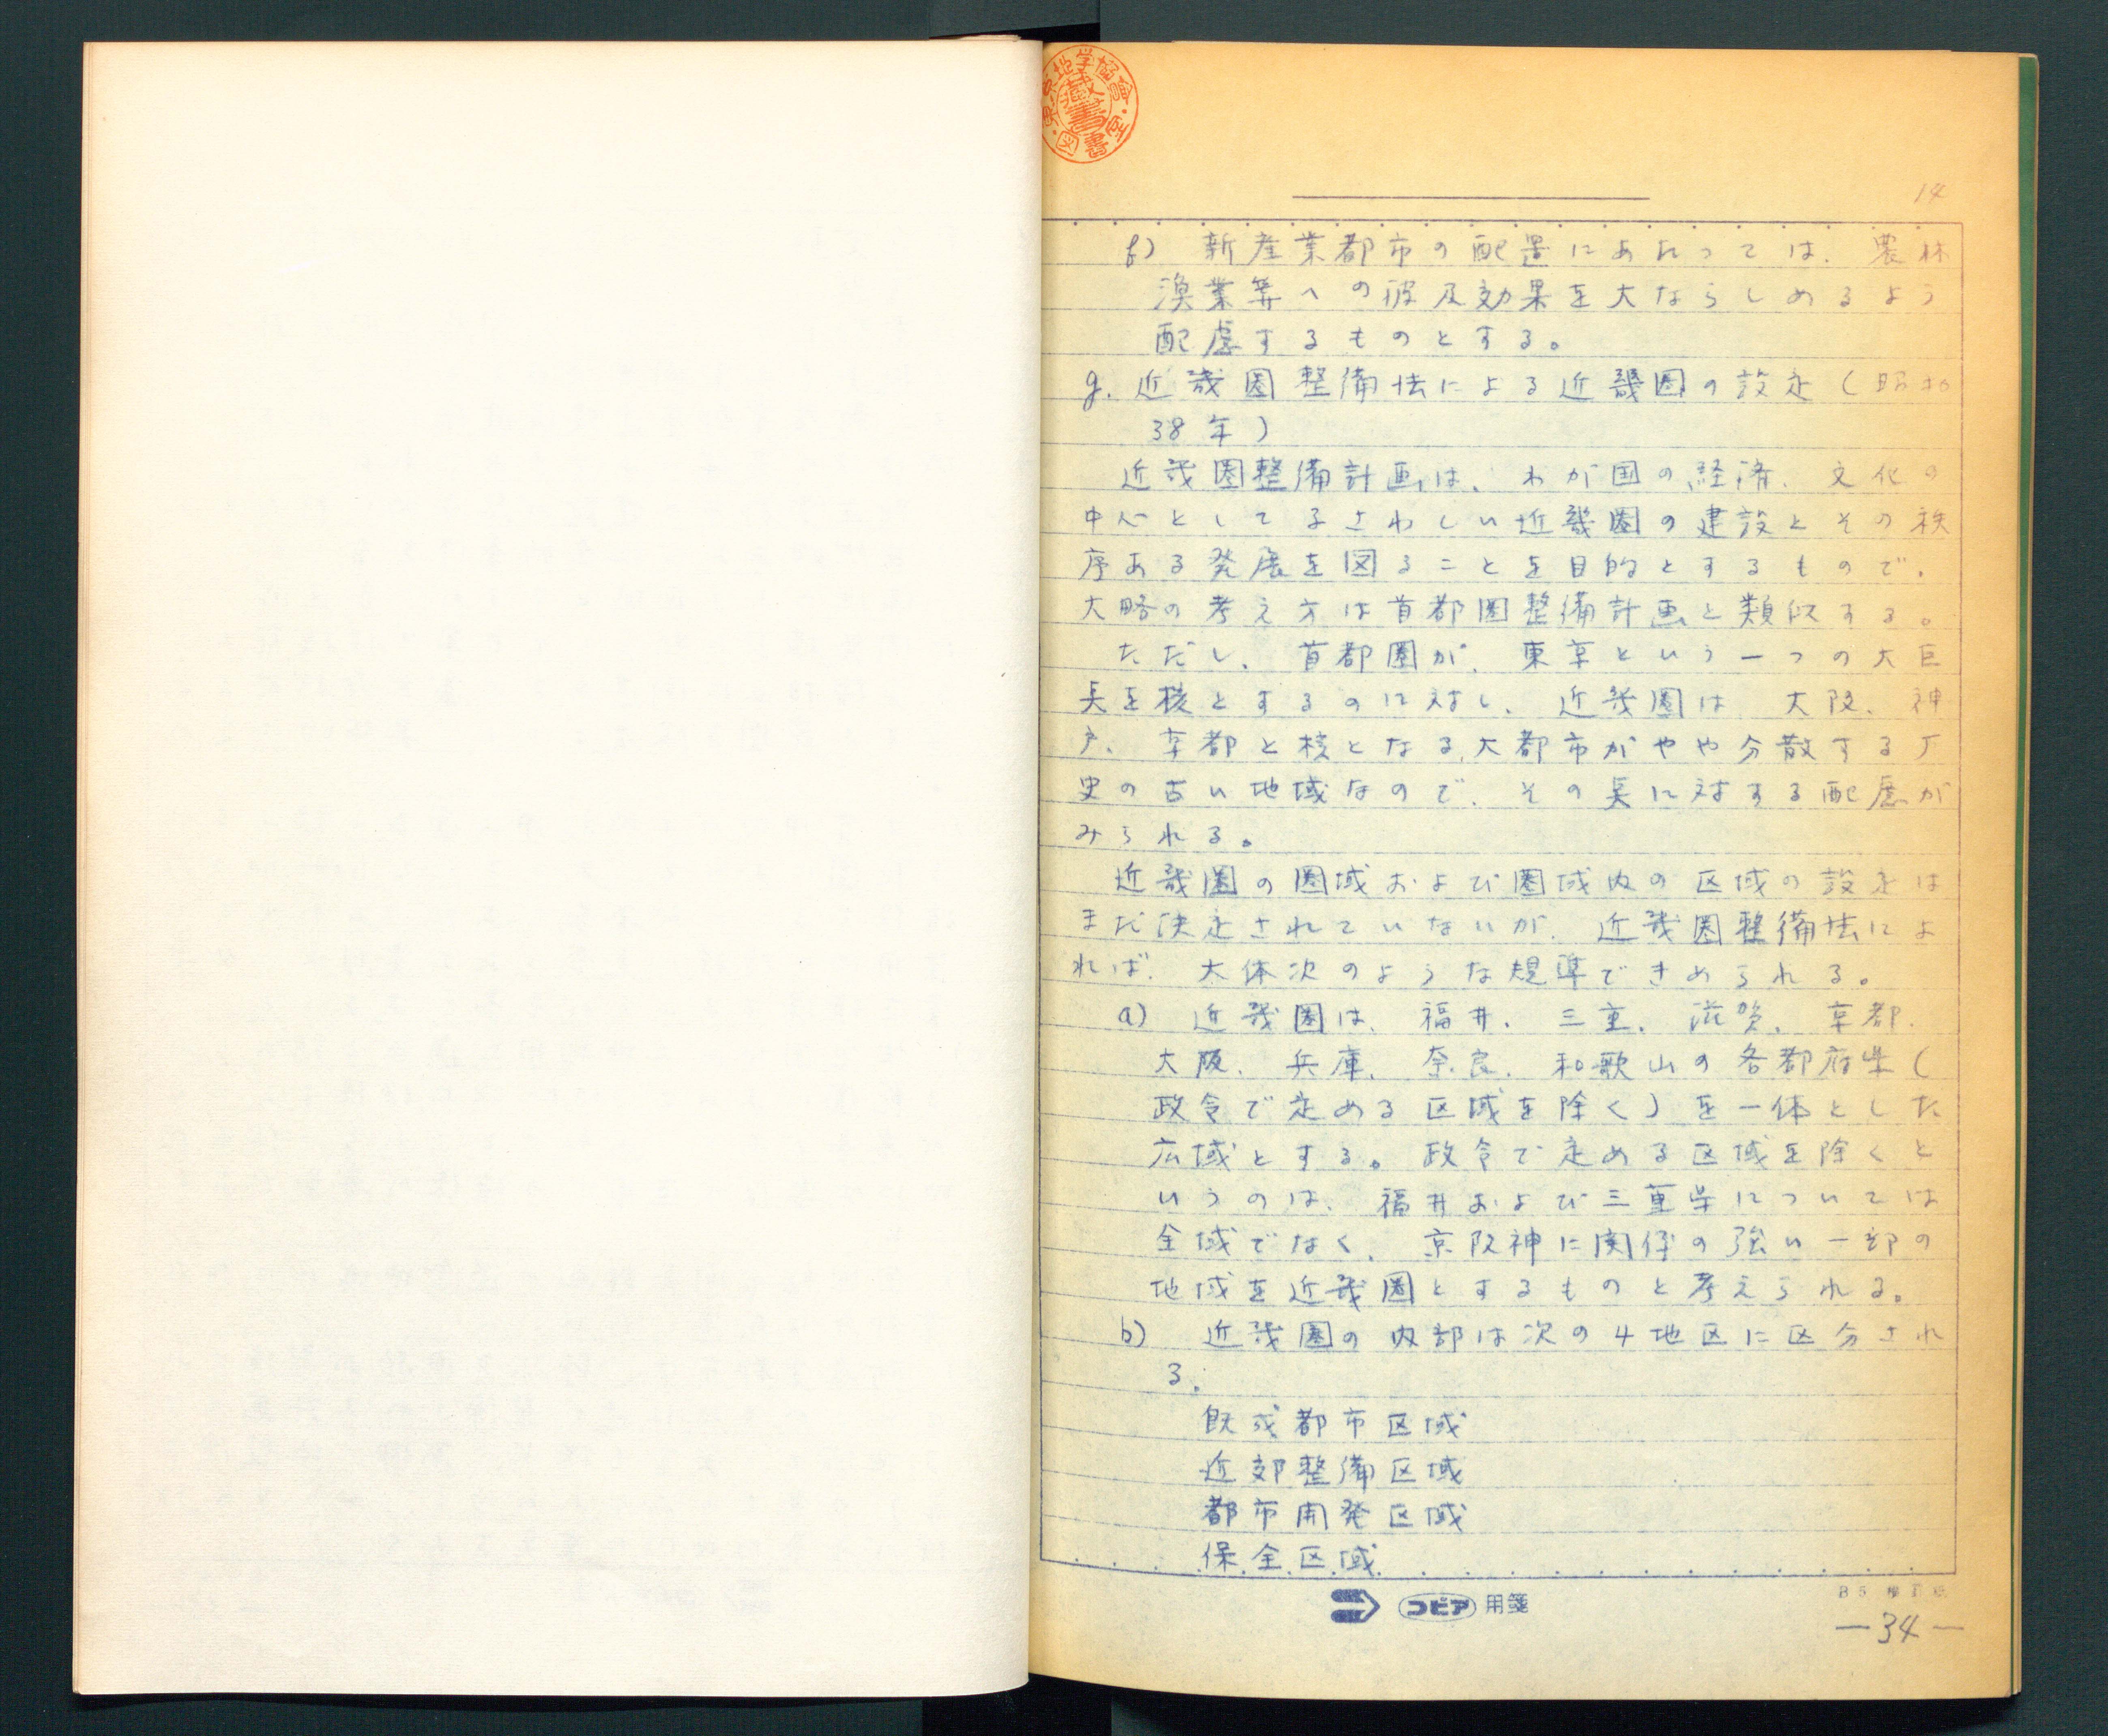 14
f) 新産業都市の配置にあたっては、農林
漁業等への波及効果を大ならしめるよう
配慮するものとする。
g. 近畿圏整備法による近畿圏の設定(昭和
38年)
近畿圏整備計画は、わが国の経済、文化の
中心としてふさわしい近畿圏の建設とその秩
序ある発展を図ることを目的とするもので、
大略の考え方は首都圏整備計画と類似する。
ただし、首都圏が、東京という一つの大巨
点を核とするのに対し、近畿圏は、大阪、神
戸、京都と核となる大都市がやや分散する厂
史の古い地域なので、その点に対する配慮が
みられる。
近畿圏の圏域および圏域内の区域の設定は
まだ決定されていないが、近畿圏整備法によ
れば、大体次のような規準できめられる。
a) 近畿圏は、福井、三重、滋賀、京都、
大阪、兵庫、奈良、和歌山の各都府県(
政令で定める区域を除く)を一体とした
広域とする。政令で定める区域を除くと
いうのは、福井および三重県については
全域でなく、京阪神に関係の強い一部の
地域を近畿圏とするものと考えられる。
b) 近畿圏の内部は次の4地区に区分され
る。
既成都市区域
近郊整備区域
都市開発区域
保全区域
コピア 用箋
B5
—34—